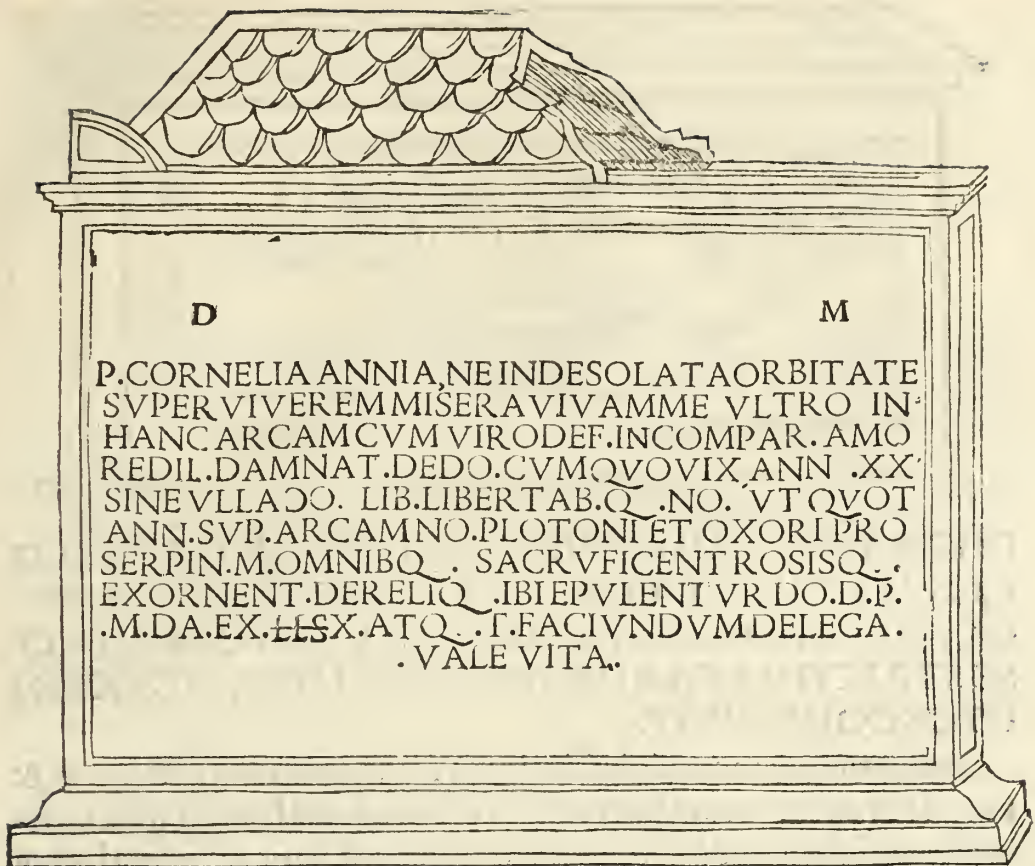 D M
P.CORNELIA ANNIA, NE IN DESOLATA ORBITATE
SVPERVIVEREM MISERA VIVAM ME VLTRO IN
HANC ARCAM CVM VIRO DEF.INCOMPAR.AMO
RE DIL.DAMNAT.DEDO.CVM QVO VIX ANN .XX
SINE VLLA ƆO. LIB.LIBERTAB.Q.NO. VT QVOT
ANN.SVP.ARCAM NO.PLOTONI ET OXORI PRO
SERPIN.M.OMNIBQ. SACRVFICENT ROSISQ..
EXORNENT.DE RELIQ.IBI EPVLENTVR DO.D.P.
.M.DA.EX.HSX.ATQ.T.FACIVNDVM DELEGA.
.VALE VITA.